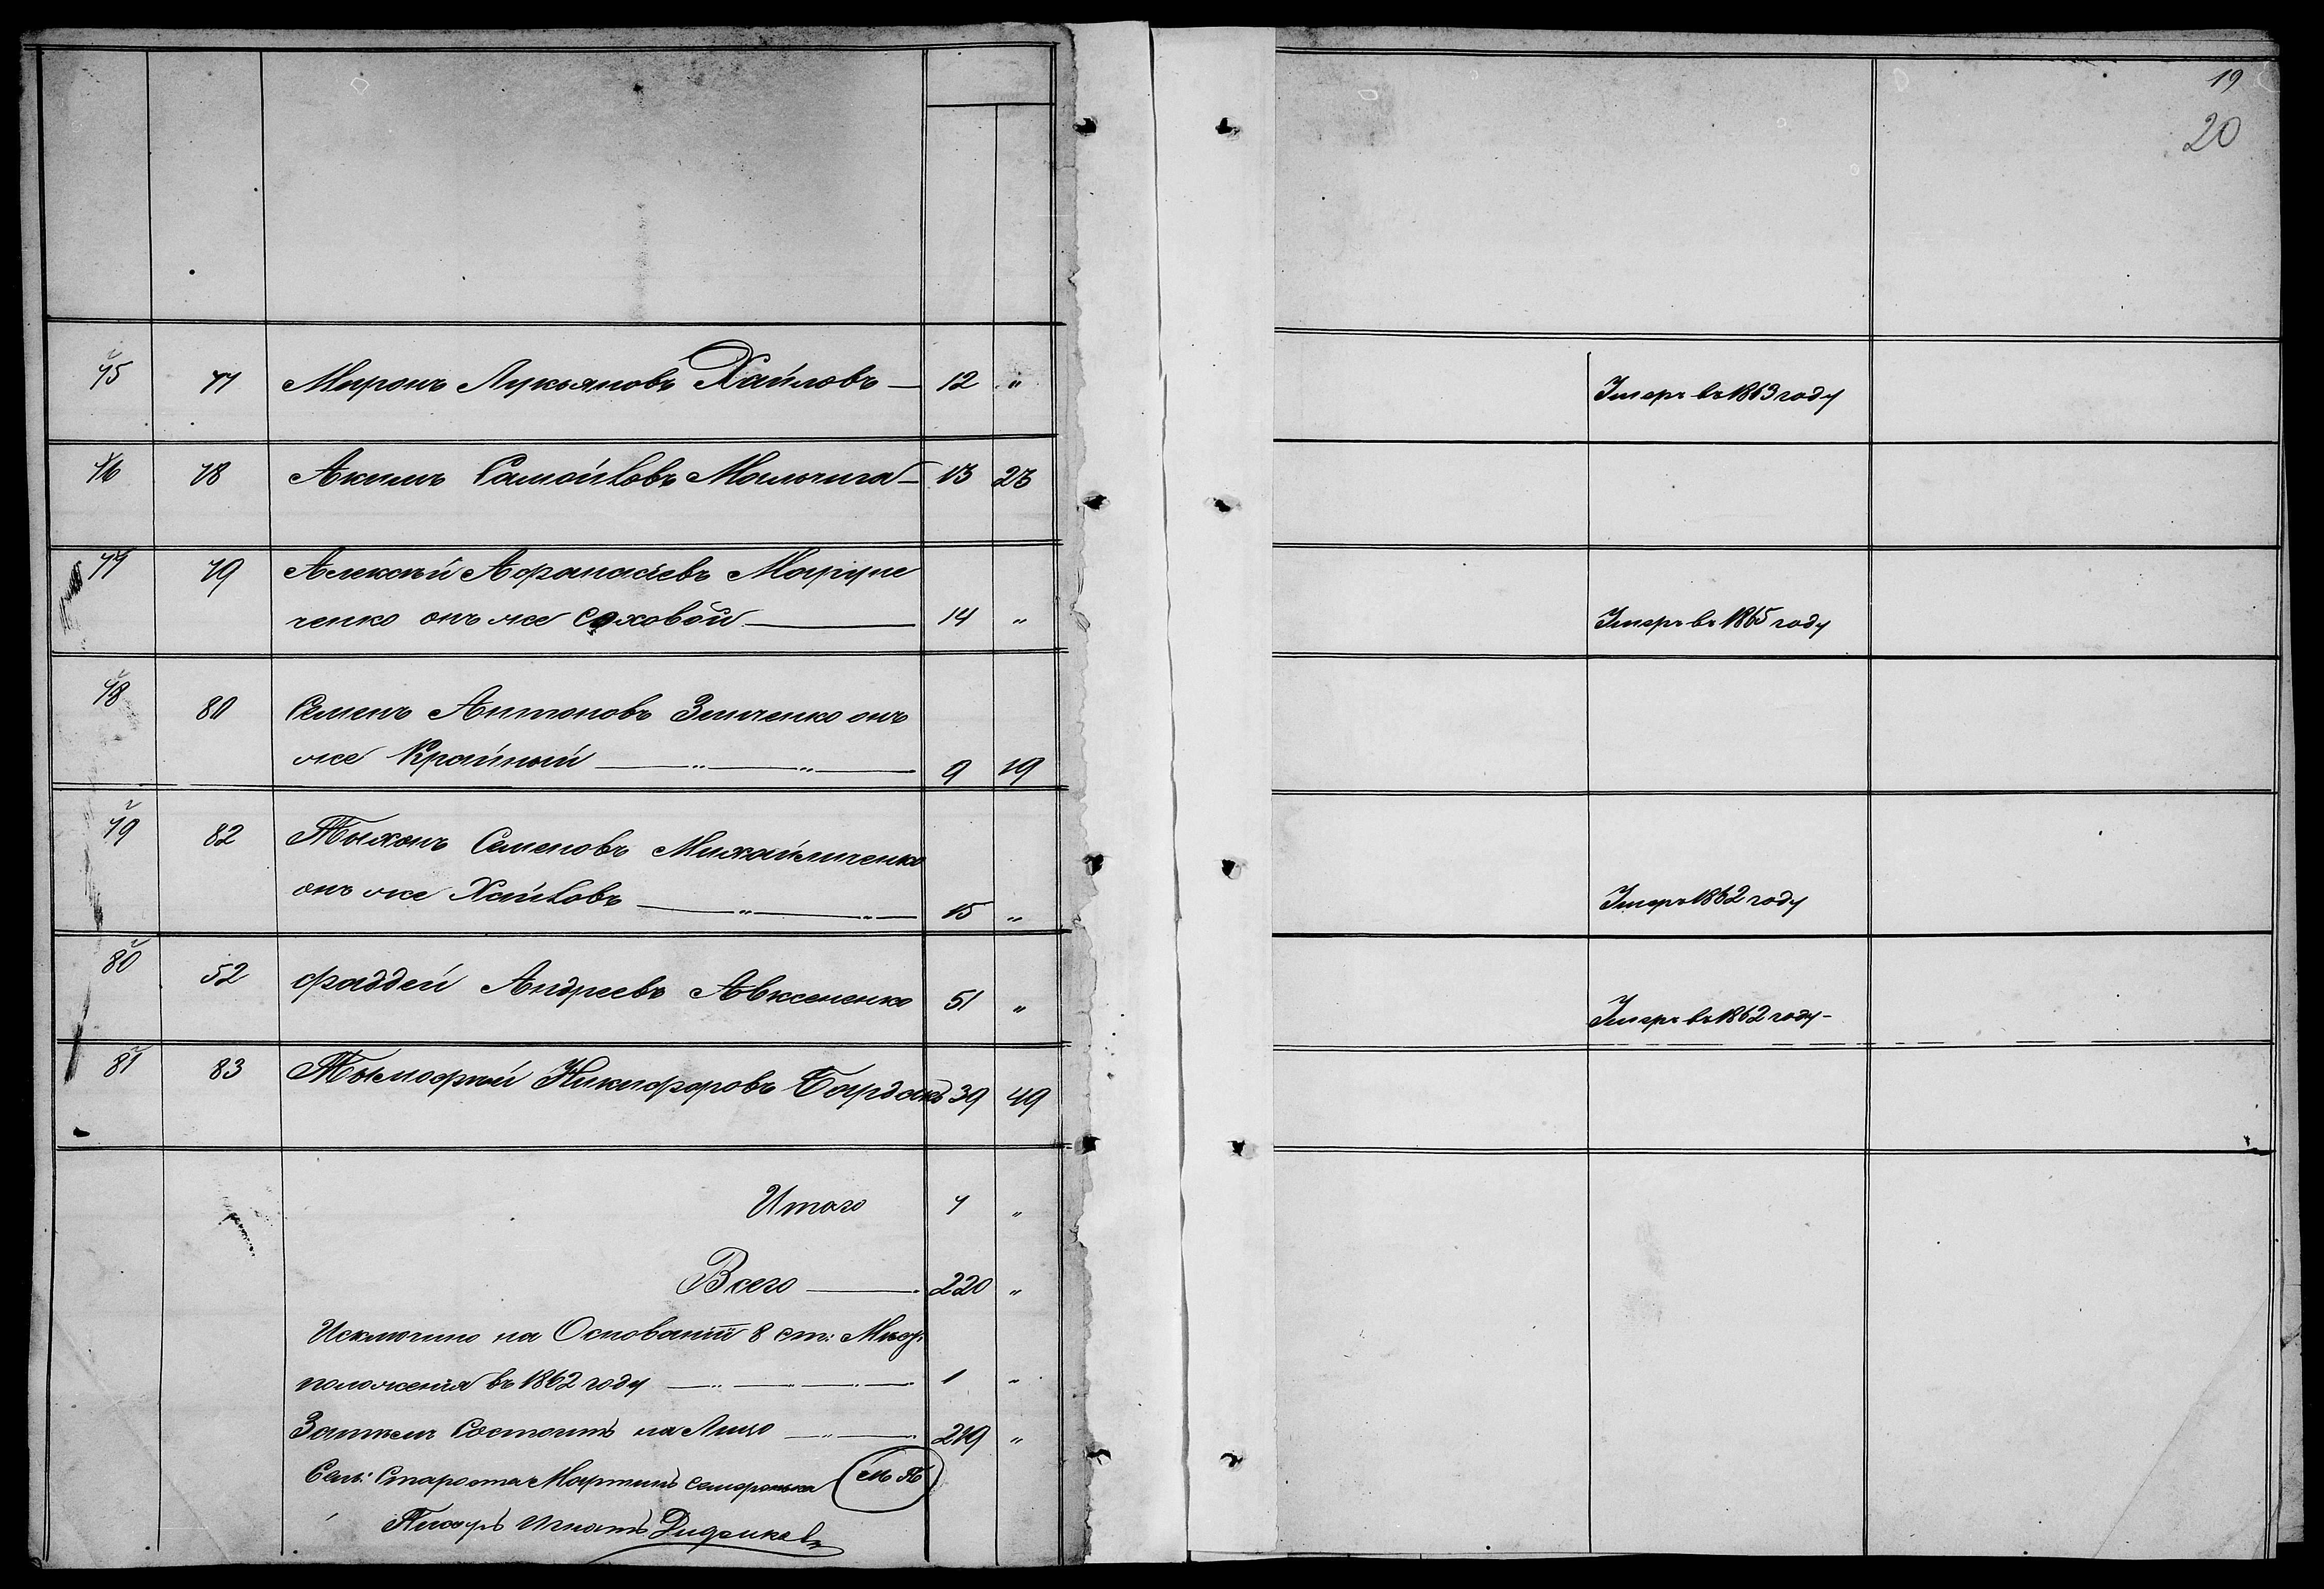 19
20
75 77 Миронъ Лукьяновъ Хайловъ — 12 "
Умеръ въ 1863 году
76 78 Акимъ Самойловъ Мальчига — 13 23
77 79 Алексѣй Афанасіевъ Марune
ченко онъ же Соховой — 14 "
Умеръ въ 1865 году
78 80 Семенъ Антоновъ Зинченко онъ
же Крайный — " — " — 9 19
79 82 Тыхонъ Семеновъ Михайличенко
онъ же Хайловъ — " — " — 15 "
Умеръ 1862 году
80 52 Фаддей Андреевъ Авксененко 51 "
Умеръ въ 1862 году -
81 83 Тымофѣй Никифоровъ Бардакъ 39 49
Итого 7 "
Всего — 220 "
Исключино на Основаніи 8 ст:
положенія въ 1862 году — 1 "
Затѣмъ Состоитъ на Лицо — 219 "
Сель: Староста Мартинъ (М П)
Писарь Игнатъ